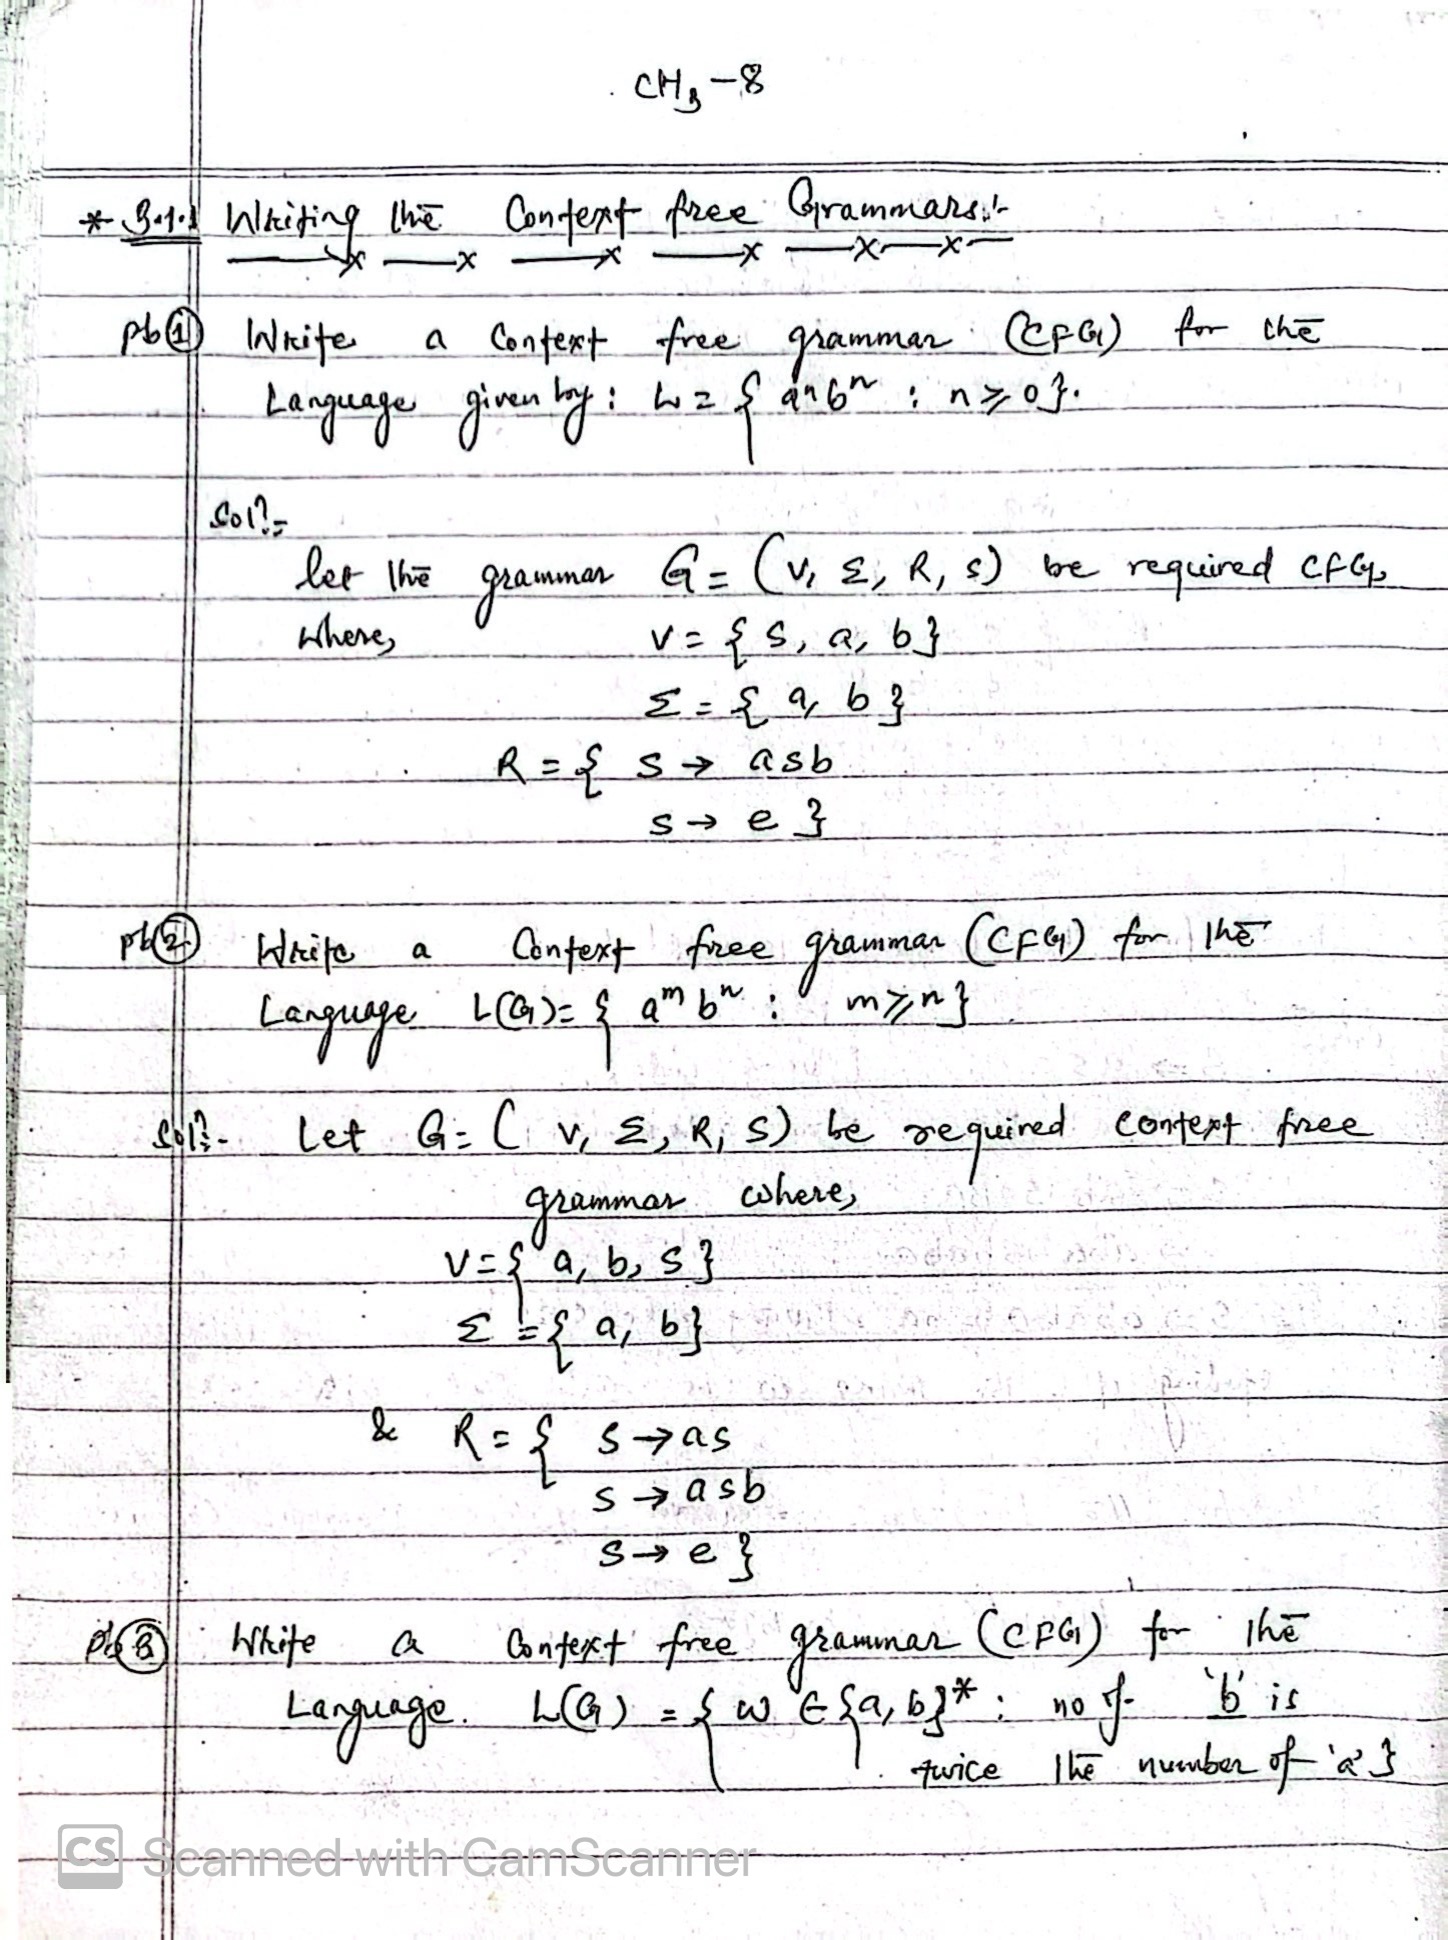 CH3-8
* 3.1.1 Writing the Context free Grammars:-
pb ① Write a Context free grammar (CFG) for the
Language given by: L = { aⁿbⁿ : n ≥ 0 }.
Solⁿ:-
let the grammar G = (V, Σ, R, S) be required CFG,
where, V = { S, a, b }
Σ = { a, b }
R = { S → aSb
S → e }
pb ② Write a Context free grammar (CFG) for the
Language L(G) = { aᵐ bⁿ : m ≥ n }
Solⁿ:- Let G = ( V, Σ, R, S) be required context free
grammar where,
V = { a, b, S }
Σ = { a, b }
& R = { S → aS
S → aSb
S → e }
pb ③ Write a Context free grammar (CFG) for the
Language. L(G) = { w ∈ {a, b}* : no of 'b' is
twice the number of 'a' }
CS Scanned with CamScanner